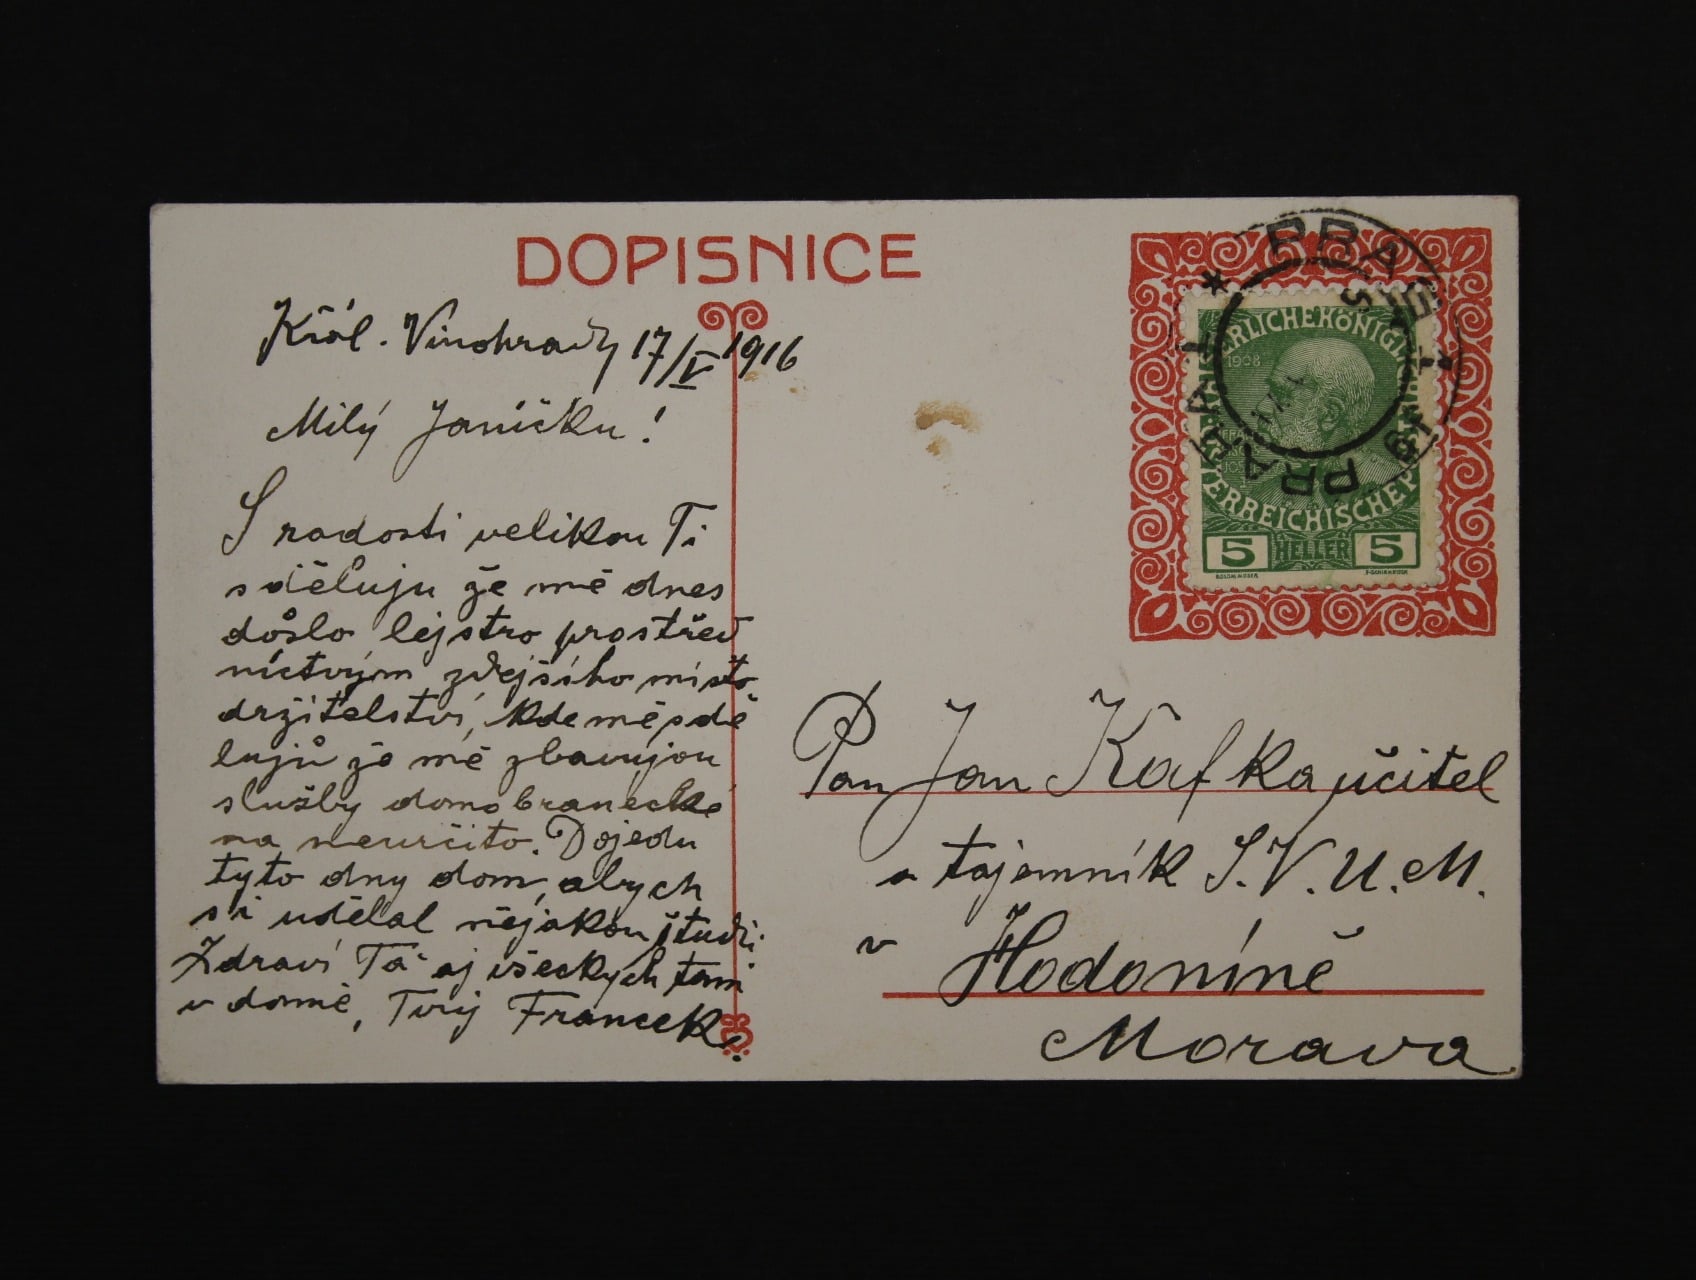 DOPISNICE
Král. Vinohrady 17/V 1916
Milý Janíčku!
S radosti velikou Ti
sděluju že mě dnes
došlo lejstro prostřed
nictvým zdejšího místo
držitelství, kde mě sdě
lujů že mě zbavujou
služby domobranecké
na neurčito. Dojedu
tyto dny dom, abych
si udělal nějakou študii
Zdraví Tă aj všeckých tam
v domě, Tvůj Francek.
1908
5 HELLER 5
PRAG
Pan Jan Kafka učitel
a tajemník S.V.U.M.
v Hodoníně
Morava